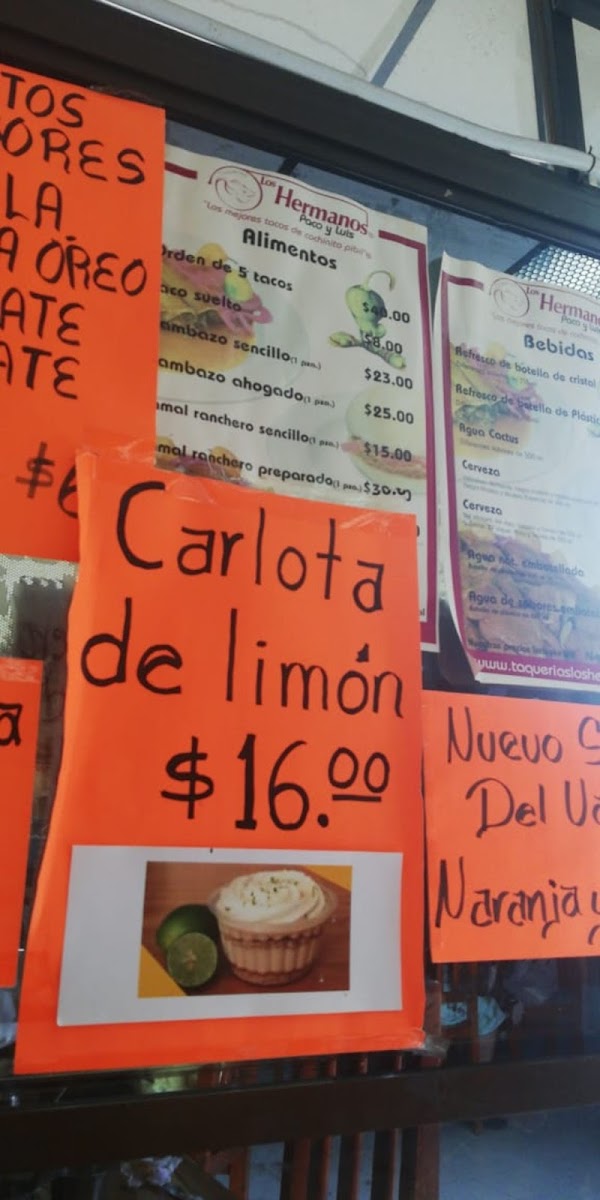 TOS
ORES
LA.
A OREO
ATE
ATE
$6
Los Hermanos
Paco y Luis
"Los mejores tacos de cochinita pibil"
Alimentos
Orden de 5 tacos $40.00
aco suelto $8.00
ambazo sencillo (1 pza.) $23.00
ambazo ahogado (1 pza.) $25.00
mal ranchero sencillo (1 pza.) $15.00
mal ranchero preparado (1 pza.) $30.00
Los Hermano
Paco y Lu
Bebidas
Refresco de botella de cristal
Refresco de botella de Plástic
Agua Cactus
Cerveza
Cerveza
Agua nat. embotellada
Agua de sabores embote
www.taqueriasloshe
Carlota
de limón
$16.00
a
Nuevo S
Del Va
Naranja y